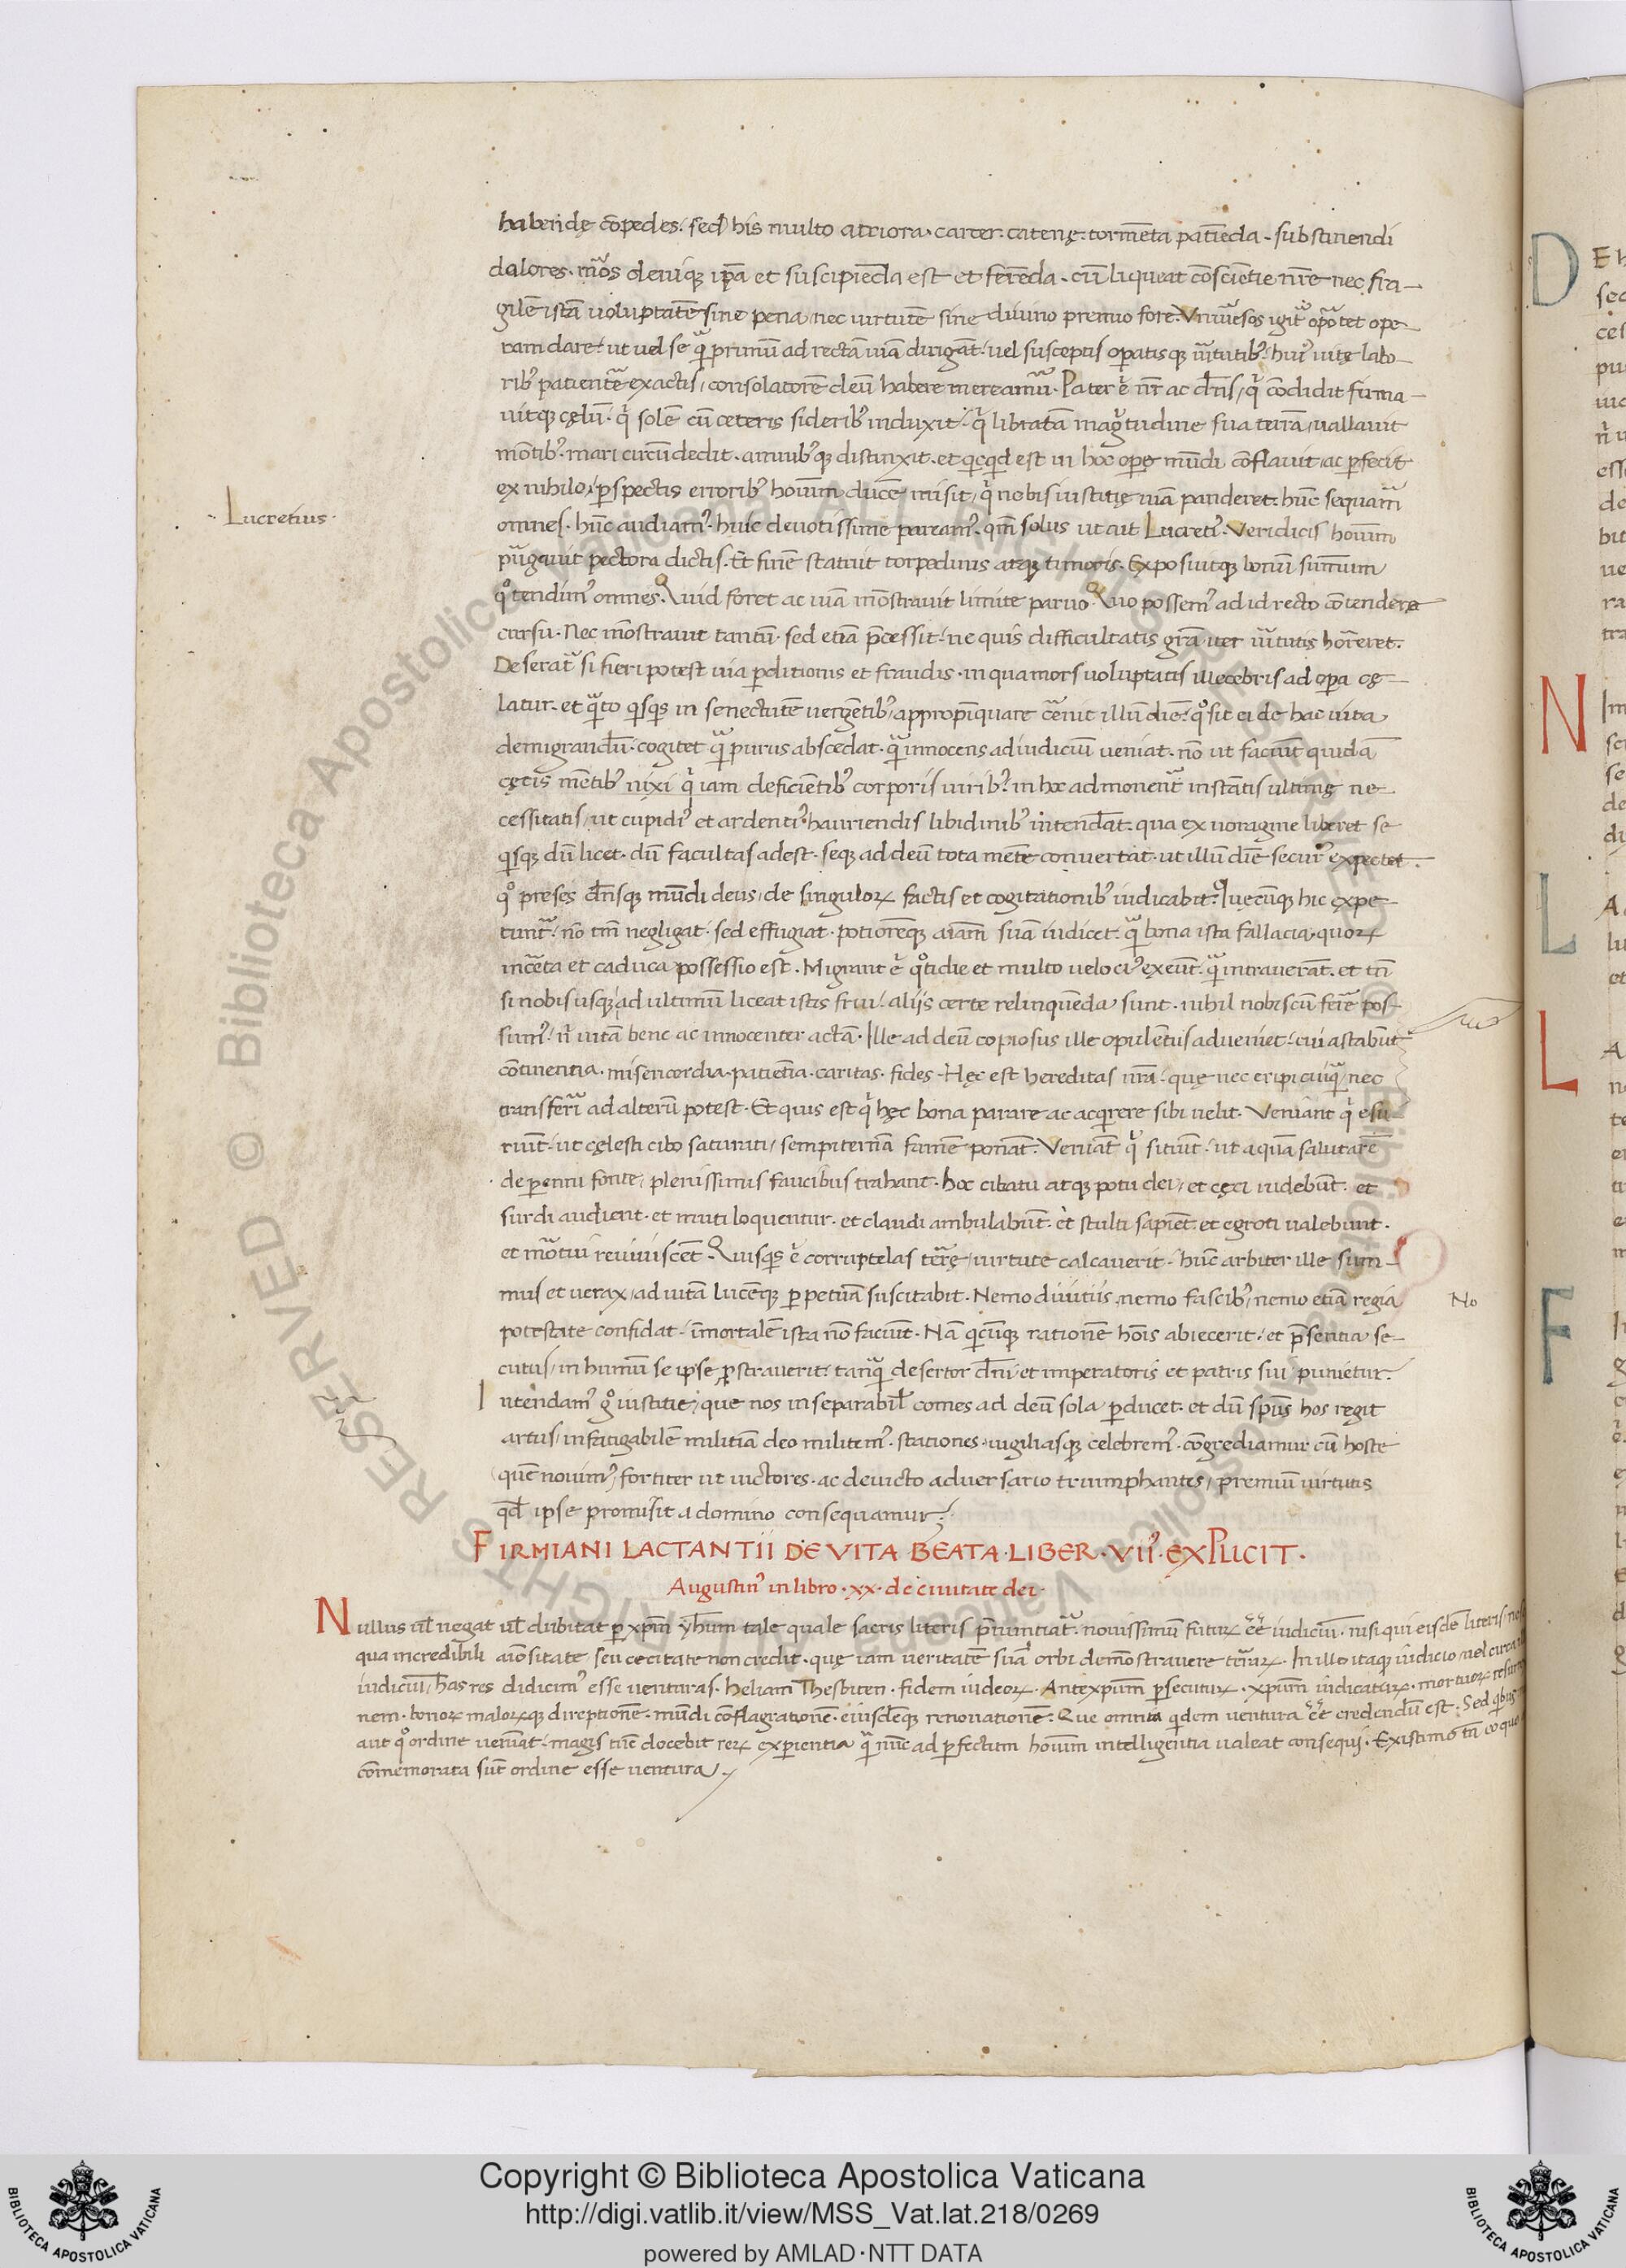 habendę cōpedes. sed his multo atriora. carcer. catenę. tormēta patiēda. substinendi
dolores. mors deniq; ipā et suscipiēda est et ferēda. cū liqueat cōsciētie nr̄e nec fra-
gilē istā uoluptatē sine pena, nec uirtutē sine diuino premio fore. Vniuersos igit̄ oportet ope-
ram dare. ut uel se q̄ primū ad rectā uiā dirigāt. uel susceptis operatisq; uirtutib; huiꝰ uitę labo-
rib; patienter exactis, consolatorē deū habere mereamur. Pater ē nr̄ ac dn̄s, q̇ cōdidit firma-
uitq; cęlū. q̇ solē cū ceteris siderib; induxit. q̇ libratā magnitudine sua terrā, uallauit
mōtib;. mari circūdedit. amnib;q; distinxit. et qcqd est in hoc ope mūdi cōflauit ac perfecit
ex nihilo. perspectis errorib; hominum ducē misit, q̇ nobis iustitię uiā panderet. hūc sequamur
· Lucretius ·
omnes. hūc audiamꝰ. huic deuotissime pareamꝰ. qm̄ solus ut ait Lucretiꝰ. Veridicis hominum
purgauit pectora dictis. Et finē statuit torpedinis atq; timoris. Exposuitq; bonū summum
qo tendimꝰ omnes. Quid foret ac uiā mōstrauit limite paruo. Quo possemꝰ ad id recto cōtendere
cursu. Nec mōstrauit tantū. sed etiā p̄cessit. ne quis difficultatis grā iter uirtutis horreret.
Deserat̄ si fieri potest uia perditionis et fraudis. in qua mors uoluptatis illecebris adoperta cę-
latur. et quāto qsqs in senectutē uergētib; appropīquare cernit illū diē. qo sit ei de hac uita
demigrandū. cogitet q̄ purus abscedat. q̄ innocens ad iudiciū ueniat. nō ut faciūt quidā
cęcis mētib; nixi q̇ iam deficiētib; corporis uirib; in hoc admonent̄ instātis ultimę ne-
cessitatis, ut cupidiꝰ et ardentiꝰ hauriendis libidinib; intendāt. qua ex uoragine liberet se
qsq; dū licet. dū facultas adest. seq; ad deū tota mēte conuertat. ut illū diē securꝰ expectet.
qo preses dn̄sq; mūdi deus, de singulorꝝ factis et cogitationib; iudicabit. Quęcūq; hic expe-
tunt̄. nō tm̄ negligat. sed effugiat. potiorēq; aiam̄ suā iudicet. q̄ bona ista fallacia, quorꝝ
incerta et caduca possessio est. Migrant ē qotidie et multo uelociꝰ exeūt. q̄ intrauerāt. et tn̄
si nobis usq; ad ultimū liceat istis frui. aliis certe relinquēda sunt. nihil nobiscū ferre pos-
sumꝰ. ni uitā bene ac innocenter actā. Ille ad deū copiosus ille opulētus adueniet. cui astabūt
cōtinentia. misericordia. patiētia. caritas. fides. Hęc est hereditas nr̄a. quę nec eripi cuiq̄ nec
transferri ad alterū potest. Et quis est q̇ hęc bona parare ac acqrere sibi uelit. Veniant q̇ esu-
riūt. ut cęlesti cibo saturati, sempiternā famē ponāt. Veniāt q̇ sitiūt. ut aquā salutarē
de perenni fonte, plenissimis faucibus trahant. hoc cibatu atq; potu dei, et cęci uidebūt. et
surdi audient. et muti loquentur. et claudi ambulabūt. et stulti sapiēt. et egroti ualebunt.
et mortui reuiuiscēt. Quisqs ē corruptelas terrę, uirtute calcauerit. hūc arbiter ille sum-
mus et uerax, ad uitā lucēq; perpetuā suscitabit. Nemo diuitiis nemo fascib; nemo etiā regia
No
potestate confidat. īmortalē ista nō faciūt. Nā qcūq; rationē hoīs abiecerit. et p̄sentia se-
cutus, in humū se ipse prostrauerit. tanq̄ desertor dn̄i et imperatoris et patris sui punietur.
Intendamꝰ go iustitie, que nos inseparabil̄ comes ad deū sola perducet. et dū sp̄us hos regit
artus, infatigabilē militiā deo militemꝰ. stationes. uigiliasq; celebremꝰ. cōgrediamur cū hoste
quē nouimꝰ, fortiter ut uictores. ac deuicto aduersario triumphantes, premiū uirtutis
qd̄ ipse promisit a domino consequamur;
FIRMIANI LACTANTII DE VITA BEATA. LIBER. VIIꝰ. EXPLICIT.
Augustinꝰ in libro .xx. de ciuitate dei.
Nullus ul̄ negat ul̄ dubitat per xp̄m yhūm tale quale sacris literis p̄nuntiat̄. nouissimū futurꝝ eē iudiciū. nisi qui eisdē literis nes
qua incredibili aīositate seu cecitate non credit. quę iam ueritatē suā orbi demōstrauere terrarꝝ. In illo itaq; iudicio uel circa
iudiciū, has res didicimꝰ esse uenturas. heliam Thesbiten. fidem iudeorꝝ. Antexpūm persecuturꝝ. xpūm iudicaturꝝ. mortuorꝝ resurre
nem. bonorꝝ malorꝝq; direptionē. mūdi cōflagrationē. eiusdēq; renouationē. Que omnia qdem uentura eē credendū est. Sed qbus
aut qo ordine ueniāt. magis tūc docebit rerꝝ experientia q̄ nūc ad perfectum hominum intelligentia ualeat consequi. Existimo tn̄ eo quo
cōmemorata sūt ordine esse uentura.
Copyright © Biblioteca Apostolica Vaticana
http://digi.vatlib.it/view/MSS_Vat.lat.218/0269
powered by AMLAD·NTT DATA